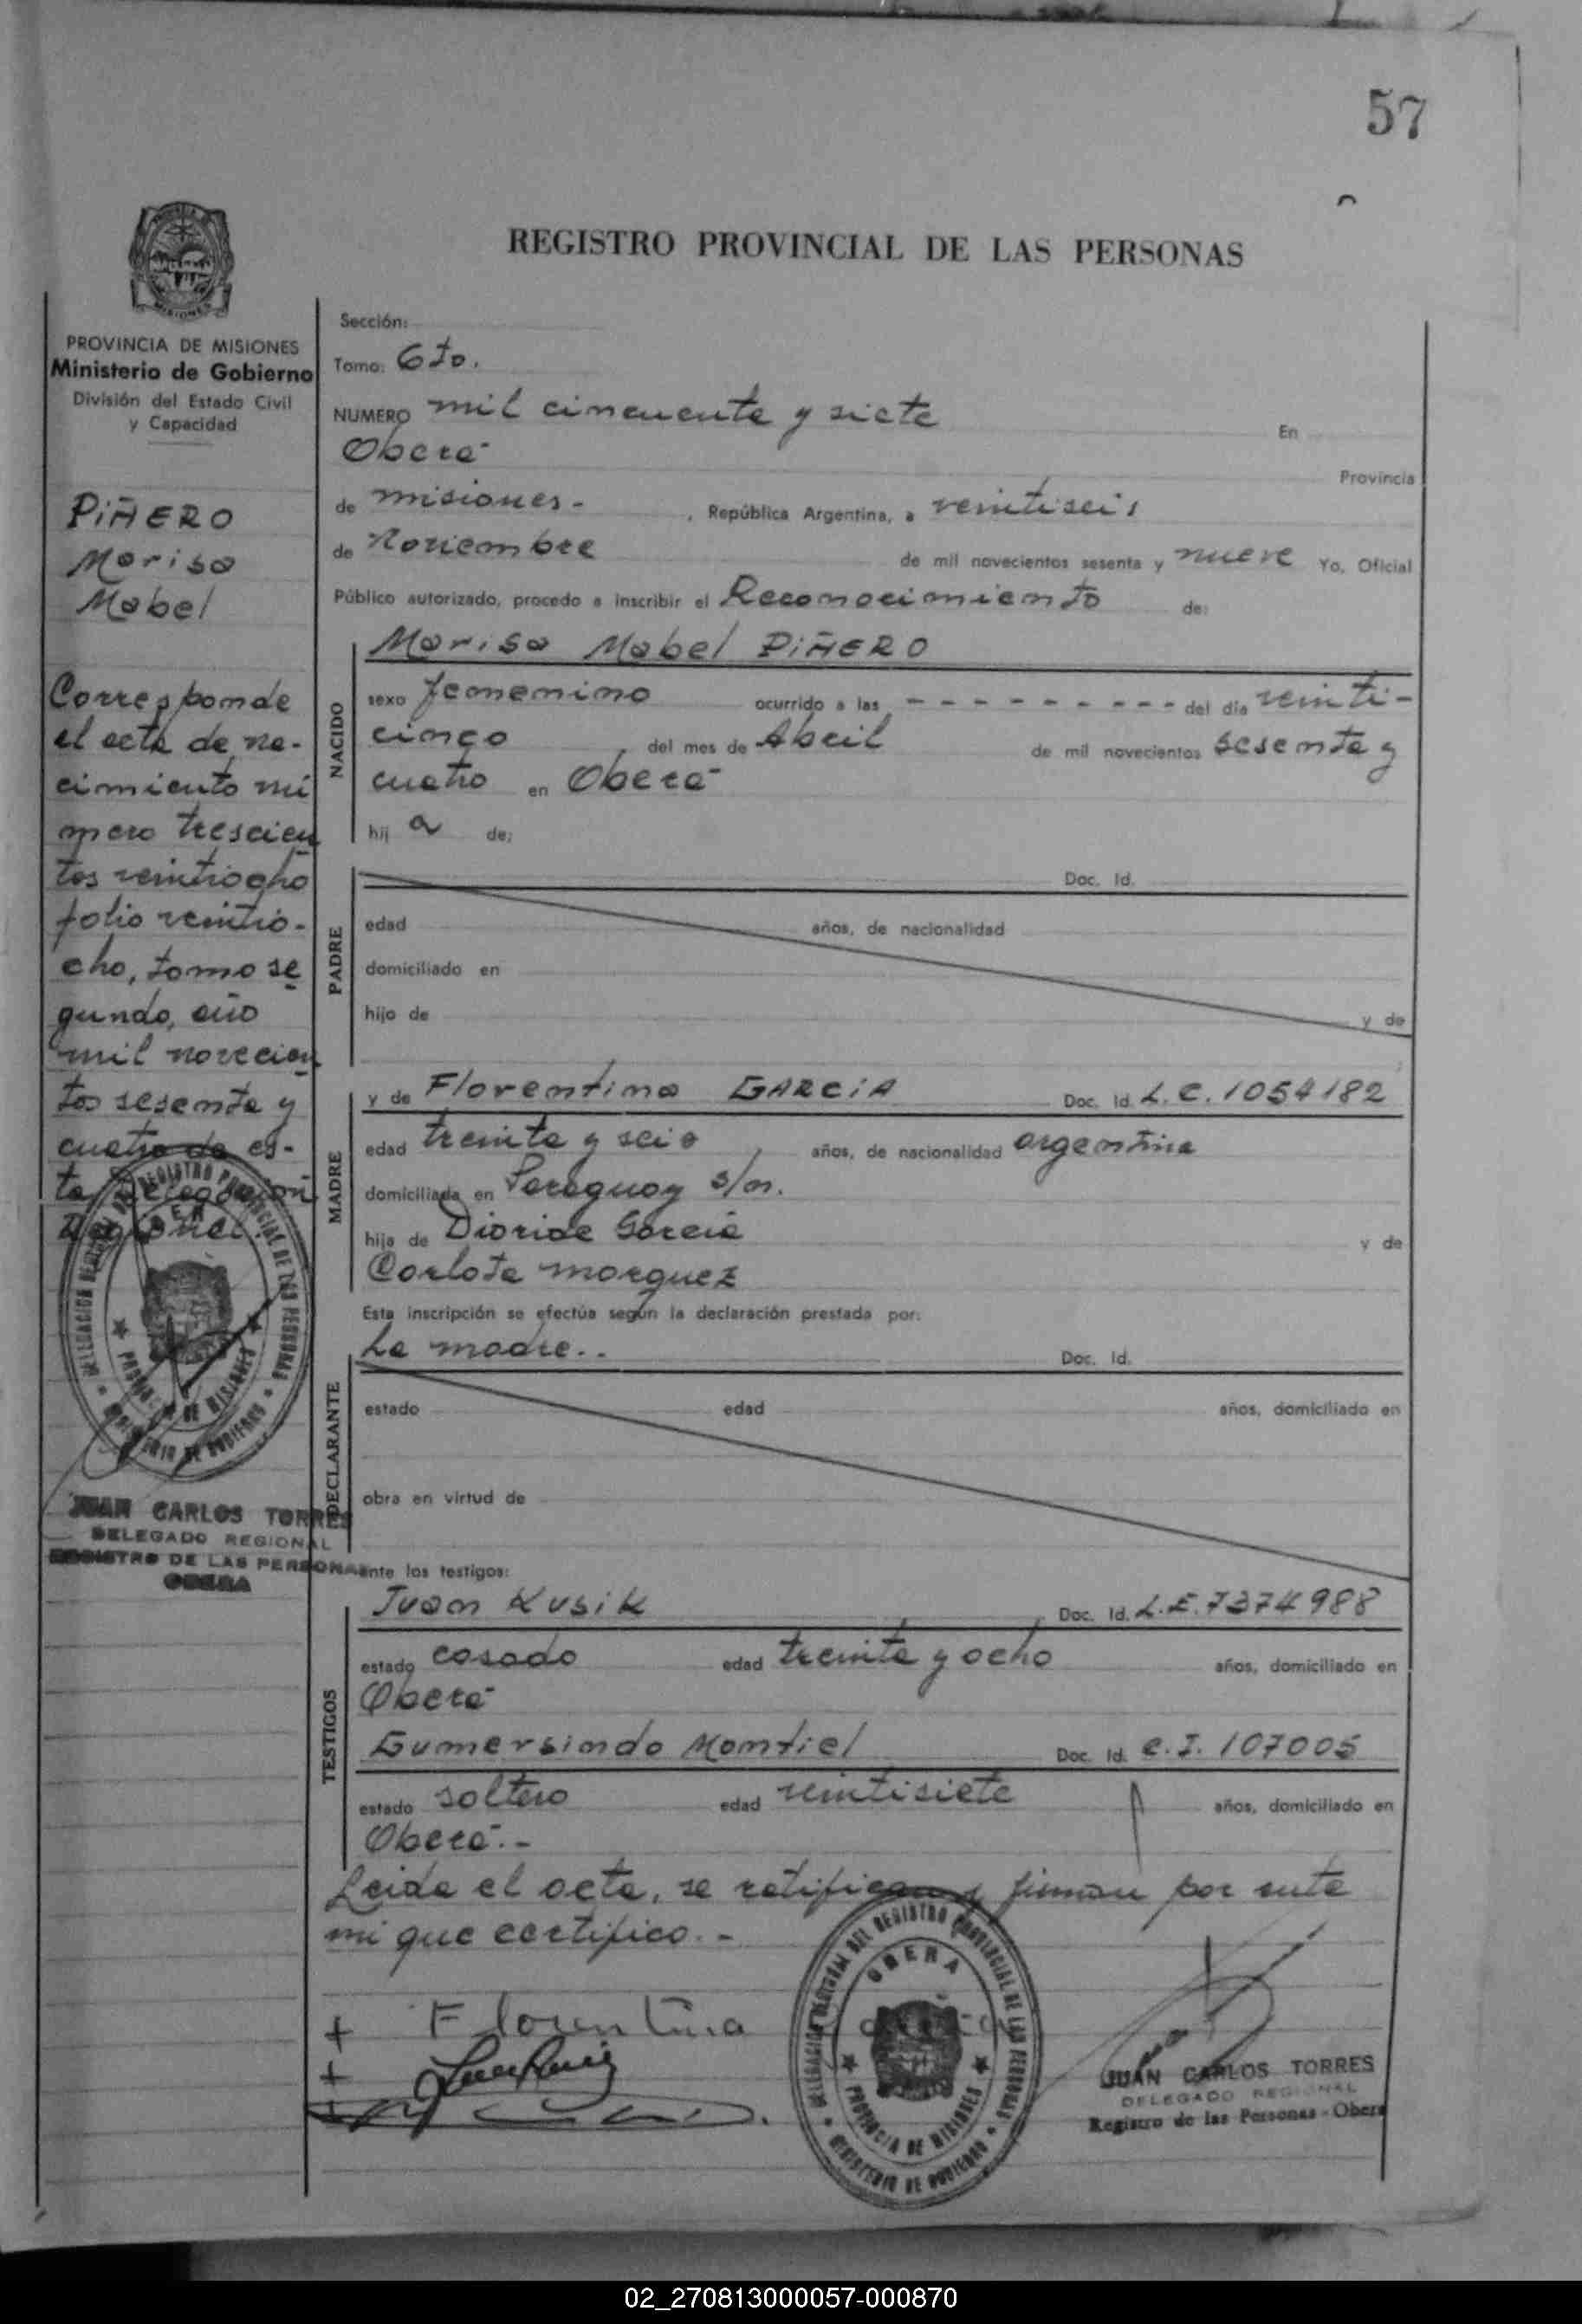 57
REGISTRO PROVINCIAL DE LAS PERSONAS
PROVINCIA DE MISIONES
Ministerio de Gobierno
División del Estado Civil
y Capacidad
PIÑERO
Marisa
Mabel
Corresponde
el acta de na-
cimiento nú
mero trescien
tos veintiocho
folio veintio-
cho, tomo se
gundo, año
mil novecien
tos sesenta y
cuatro de es-
ta Delegación
Regional
JUAN CARLOS TORRES
DELEGADO REGIONAL
REGISTRO DE LAS PERSONAS
OBERA
Sección:
Tomo: 6to.
NUMERO mil cincuenta y siete En
Oberá
Provincia
de Misiones.- , República Argentina, a veintiseis
de Noviembre de mil novecientos sesenta y nueve Yo, Oficial
Público autorizado, procedo a inscribir el Reconocimiento de:
NACIDO
Marisa Mabel PIÑERO
sexo femenino ocurrido a las - - - - - - - - - del día veinti-
cinco del mes de Abril de mil novecientos sesenta y
cuatro en Oberá
hij a de:
PADRE
Doc. Id.
edad años, de nacionalidad
domiciliado en
hijo de y de
MADRE
y de Florentina GARCIA Doc. Id. L.C. 1054182
edad treinta y seis años, de nacionalidad argentina
domiciliada en Paraguay s/n.
hija de Garcia y de
Carlota Marquez
Esta inscripción se efectúa según la declaración prestada por:
La madre.. Doc. Id.
DECLARANTE
estado edad años, domiciliado en
obra en virtud de
ante los testigos:
TESTIGOS
Juan Kusik Doc. Id. L.E. 7374988
estado casado edad treinta y ocho años, domiciliado en
Oberá
Gumersindo Montiel Doc. Id. C.I. 107005
estado soltero edad veintisiete años, domiciliado en
Oberá.-
Leida el acta, se ratifican y firman por ante
mi que certifico.-
Florentina
DELEGACION REGIONAL DEL REGISTRO PROVINCIAL DE LAS PERSONAS
OBERA
PROVINCIA DE MISIONES
MINISTERIO DE GOBIERNO
JUAN CARLOS TORRES
DELEGADO REGIONAL
Registro de las Personas - Obera
02_270813000057-000870